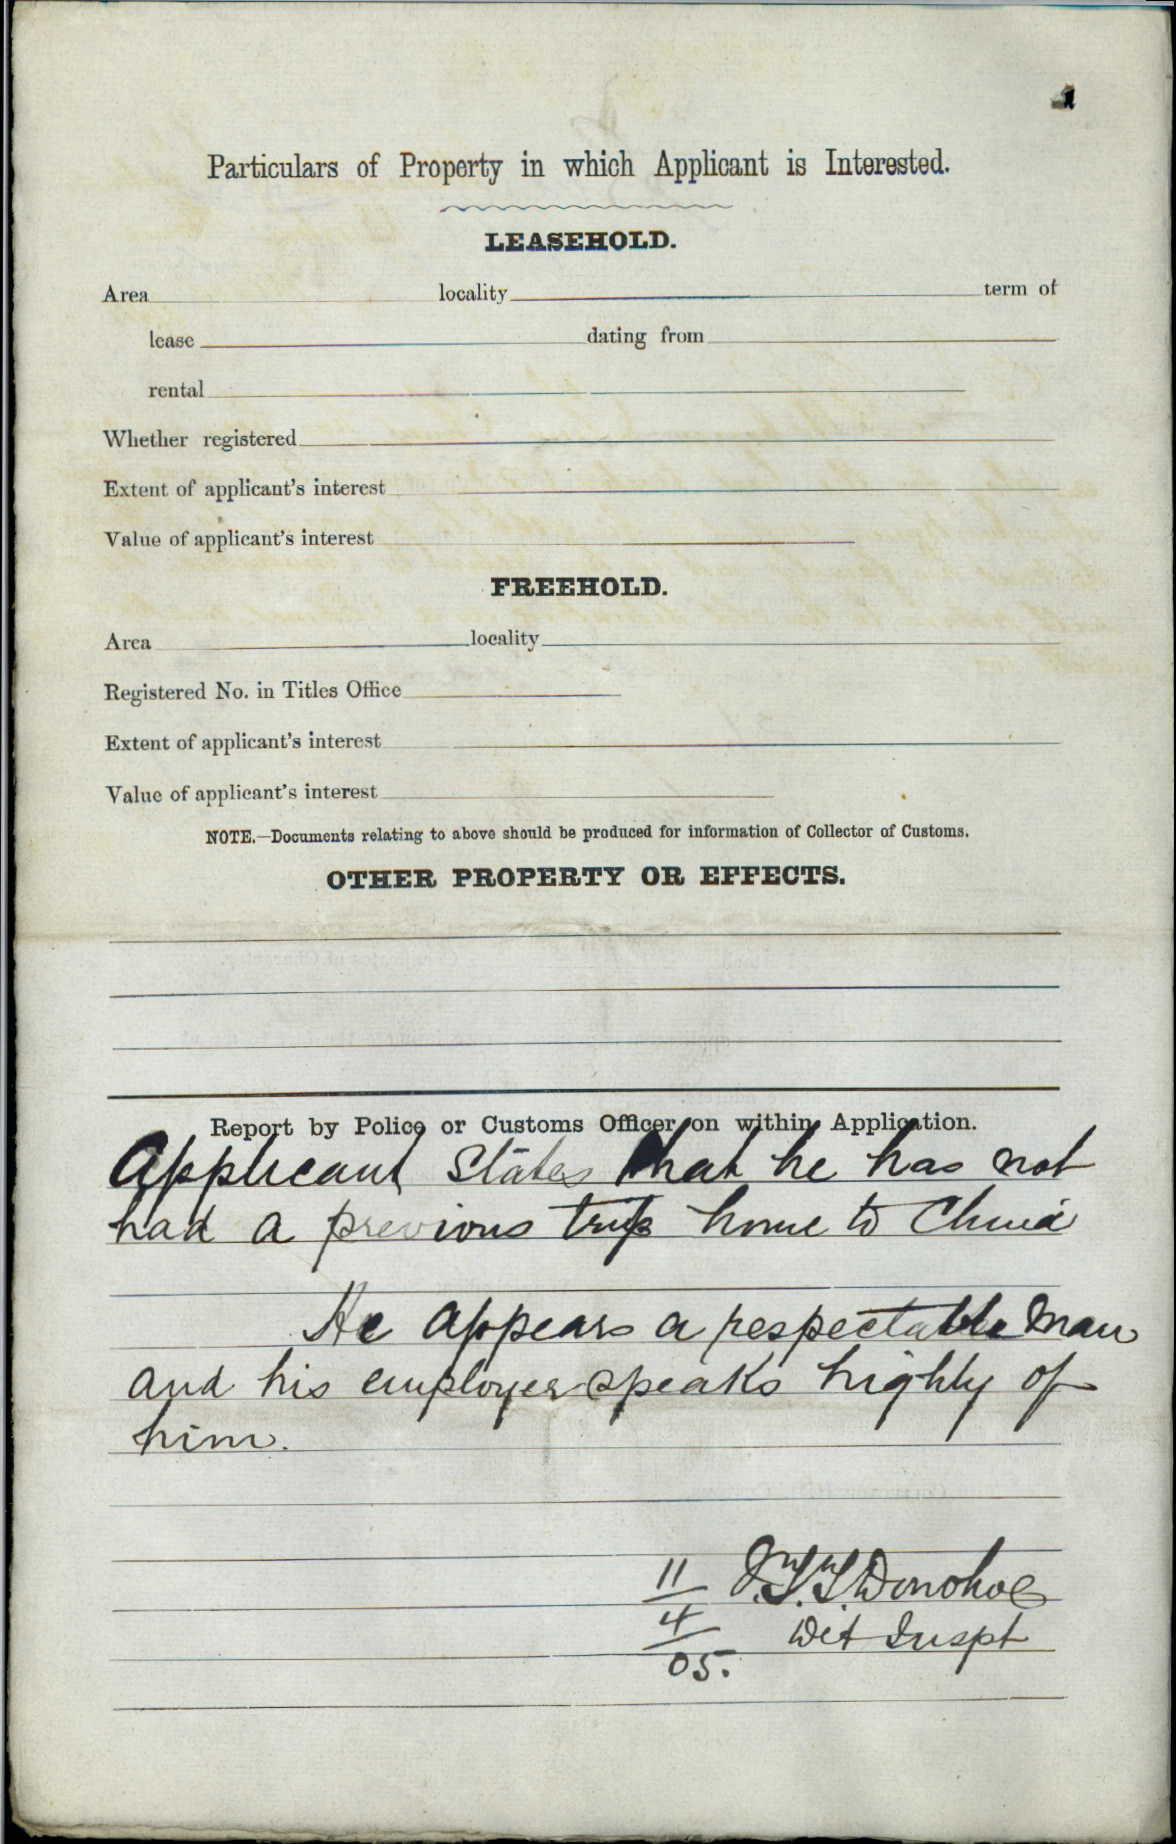 Particulars of Property in which Applicant is Interested.
LEASEHOLD.
Area locality term of
lease dating from
rental
Whether registered
Extent of applicant's interest
Value of applicant's interest
FREEHOLD.
Area locality
Registered No. in Titles Office
Extent of applicant's interest
Value of applicant's interest
NOTE.—Documents relating to above should be produced for information of Collector of Customs.
OTHER PROPERTY OR EFFECTS.
Report by Police or Customs Officer on within Application.
Applicant states that he has not
had a previous trip home to China
He appears a respectable man
and his employer speaks highly of
him.
11 Donohoe
4 Det Inspt
05.